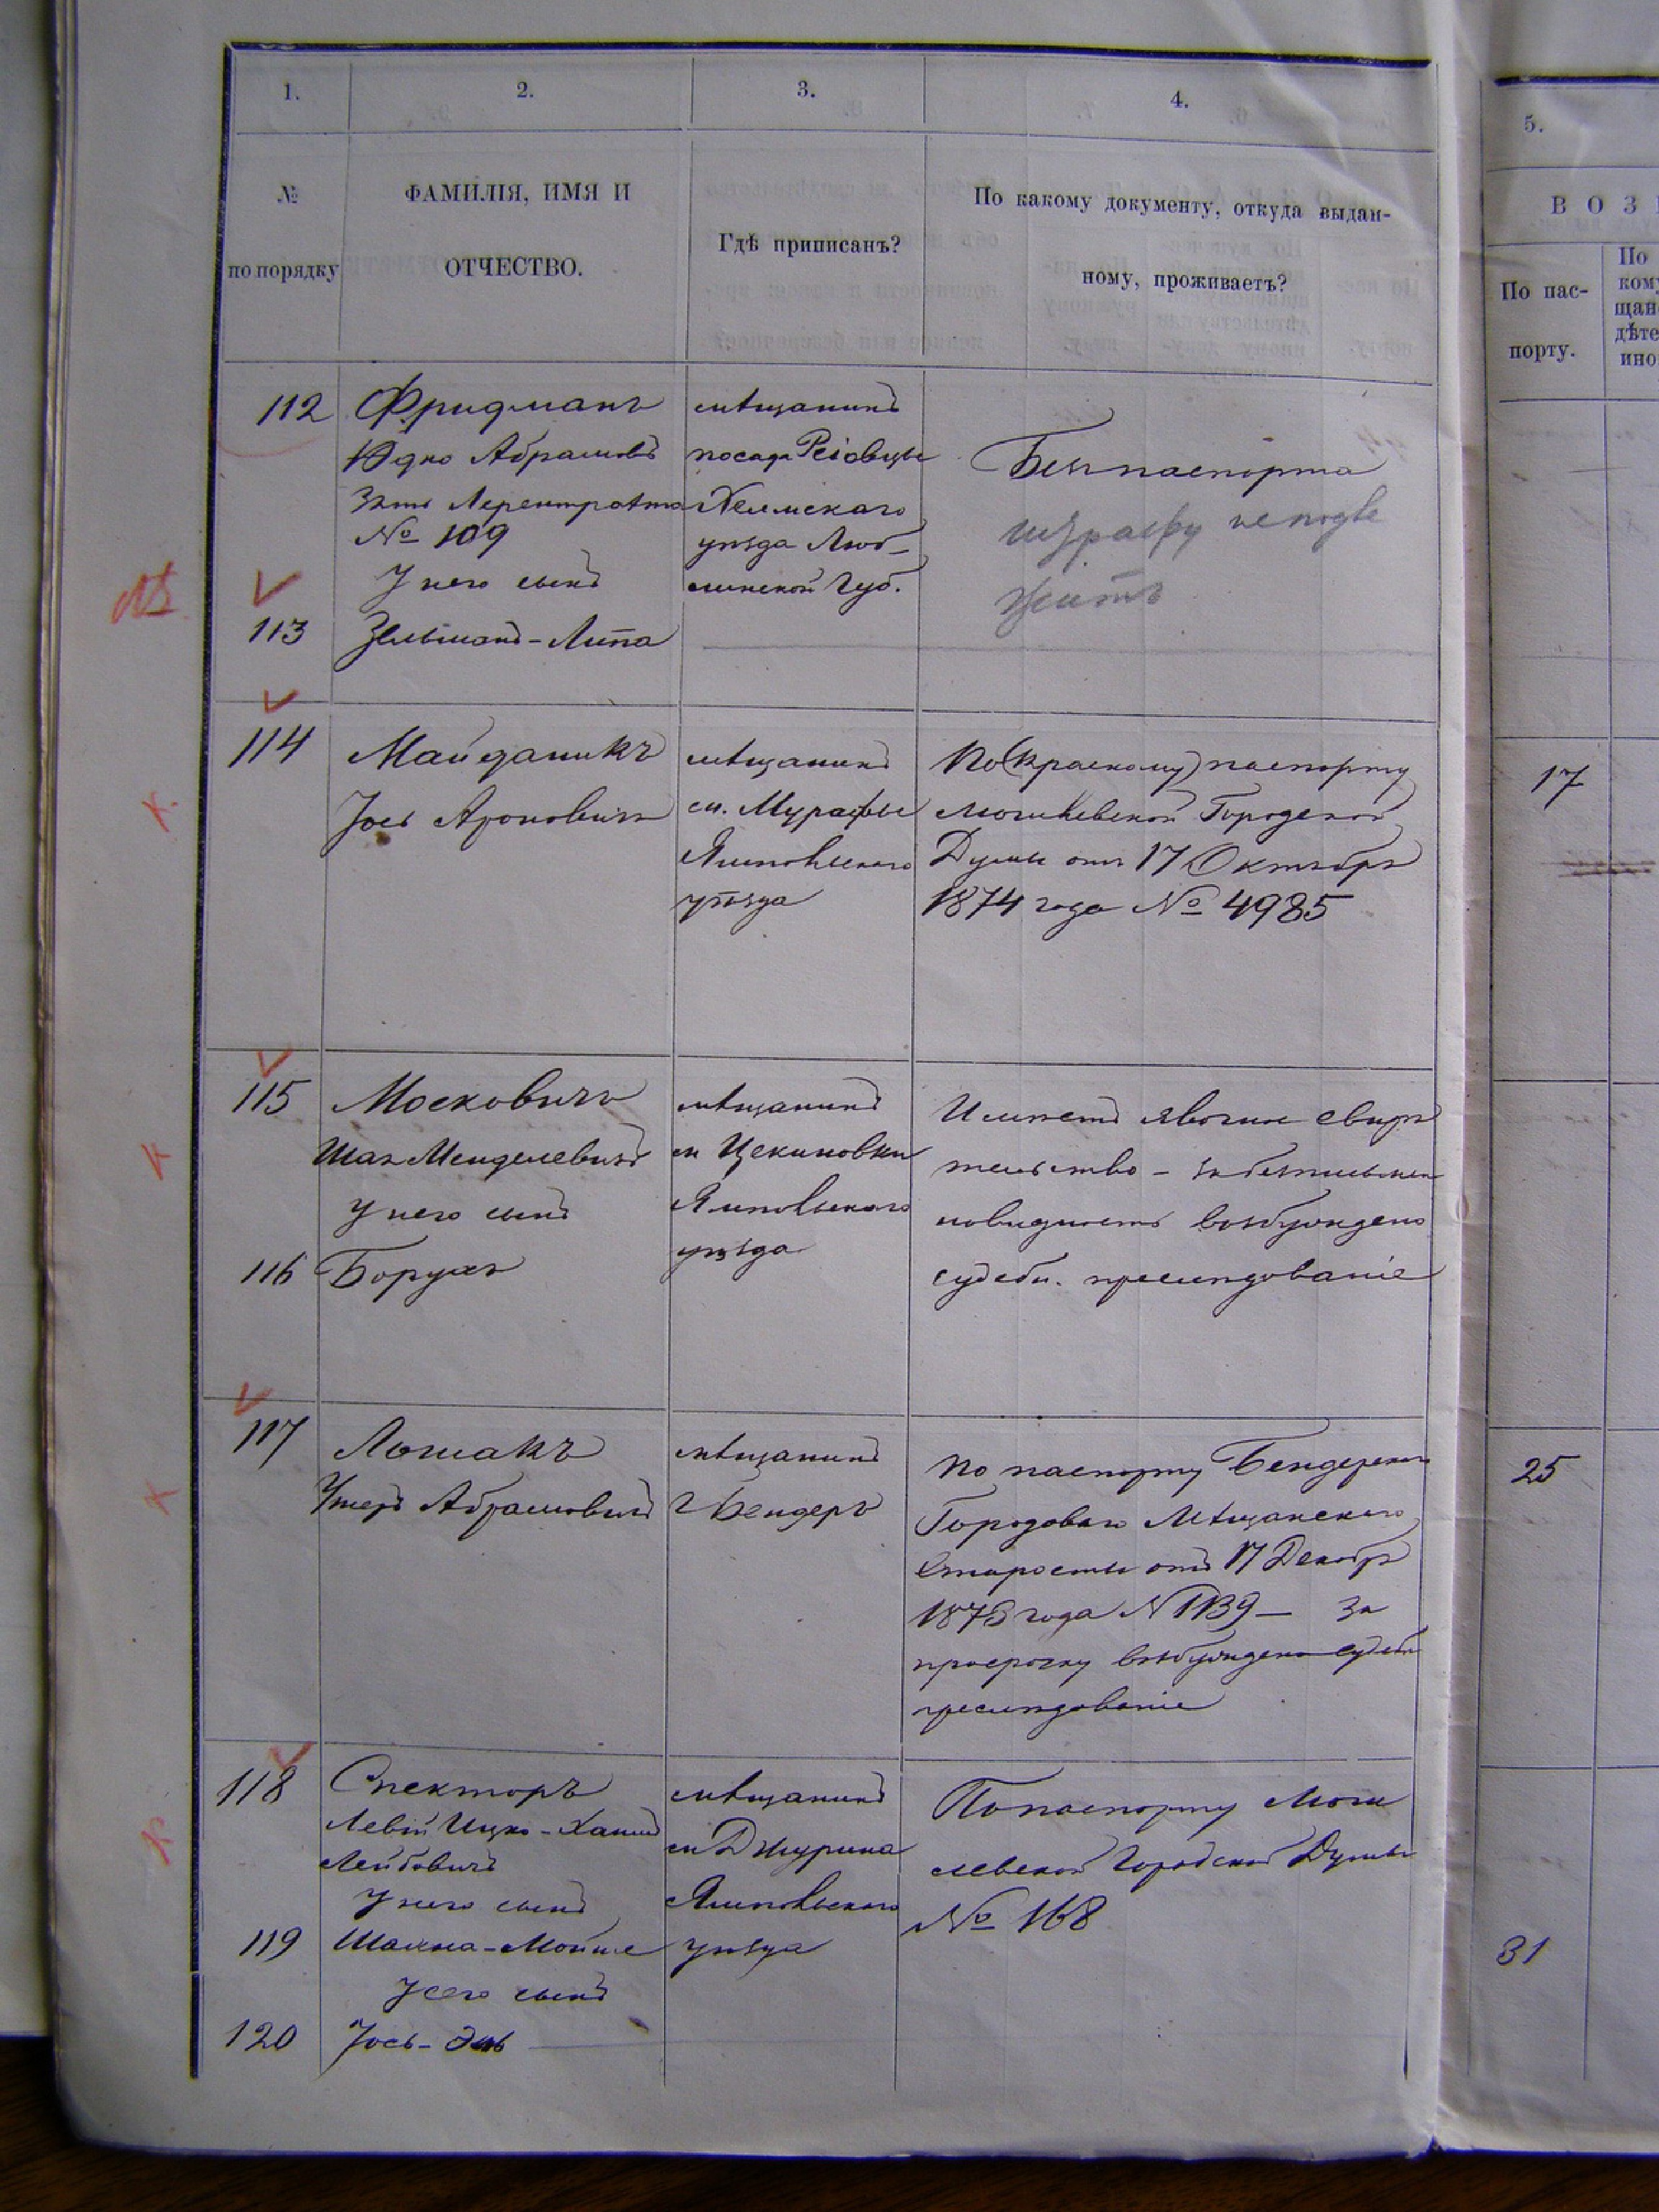 1. 2. 3. 4. 5.
№ по порядку
ФАМИЛІЯ, ИМЯ И
ОТЧЕСТВО.
Гдѣ приписанъ?
По какому документу, откуда выдан-
ному, проживаетъ?
ВОЗ
По пас-
порту.
По
ком
щан
дѣте
ино
112
Фридманъ
Юдко Абрамовъ
Зять
№ 109
У него сынъ
113 Зельманъ-Липа
мѣщанинъ
посада Реіовцы
Хелмскаго
уѣзда Люб-
линской Губ.
Безъ паспорта
штрафу не подле
житъ
114
Майданикъ
Іось Ароновичъ
мѣщанинъ
м. Мурафы
Ямпольскаго
уѣзда
По (красному) паспорту
Могилевской Городской
Думы отъ 17 Октября
1874 года № 4985
17
115
Московичъ
Шая Менделевичъ
У него сынъ
116 Борухъ
мѣщанинъ
м Цекиновки
Ямпольскаго
уѣзда
Имѣетъ явочное свидѣ
тельство - за безписьмен
новидность возбуждено
судебн. преслѣдованіе
117
Лошакъ
Ушеръ Абрамовичъ
мѣщанинъ
г Бендеръ
По паспорту Бендерскаго
Городоваго Мѣщанскаго
Старосты отъ 17 Декабр
187 года N 1139 - За
просрочку возбуждено судебн
преслѣдованіе
25
118
Спекторъ
Левій Ицко-Хаимъ
Лейбовичъ
У него сынъ
119 Шахна-Мойше
У сего сынъ
120 Іось-Эль
мѣщанинъ
м Джурина
Ямпольскаго
уѣзда
По паспорту Моги
левской Городской Думы
№ 168
31